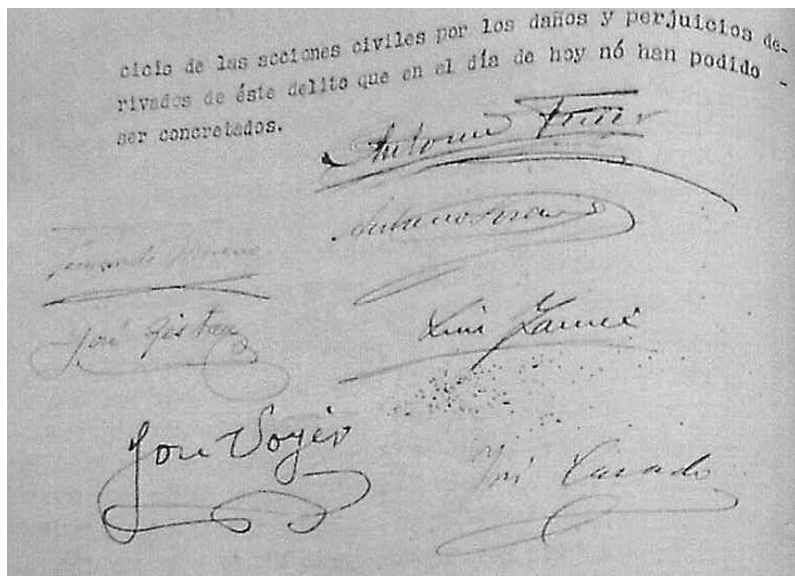 cicio de las acciones civiles por los daños y perjuicios de-
rivados de éste delito que en el día de hoy nó han podido -
ser concretados.
Antonio
Fernando Moreno
José
Luis
José
José Casado